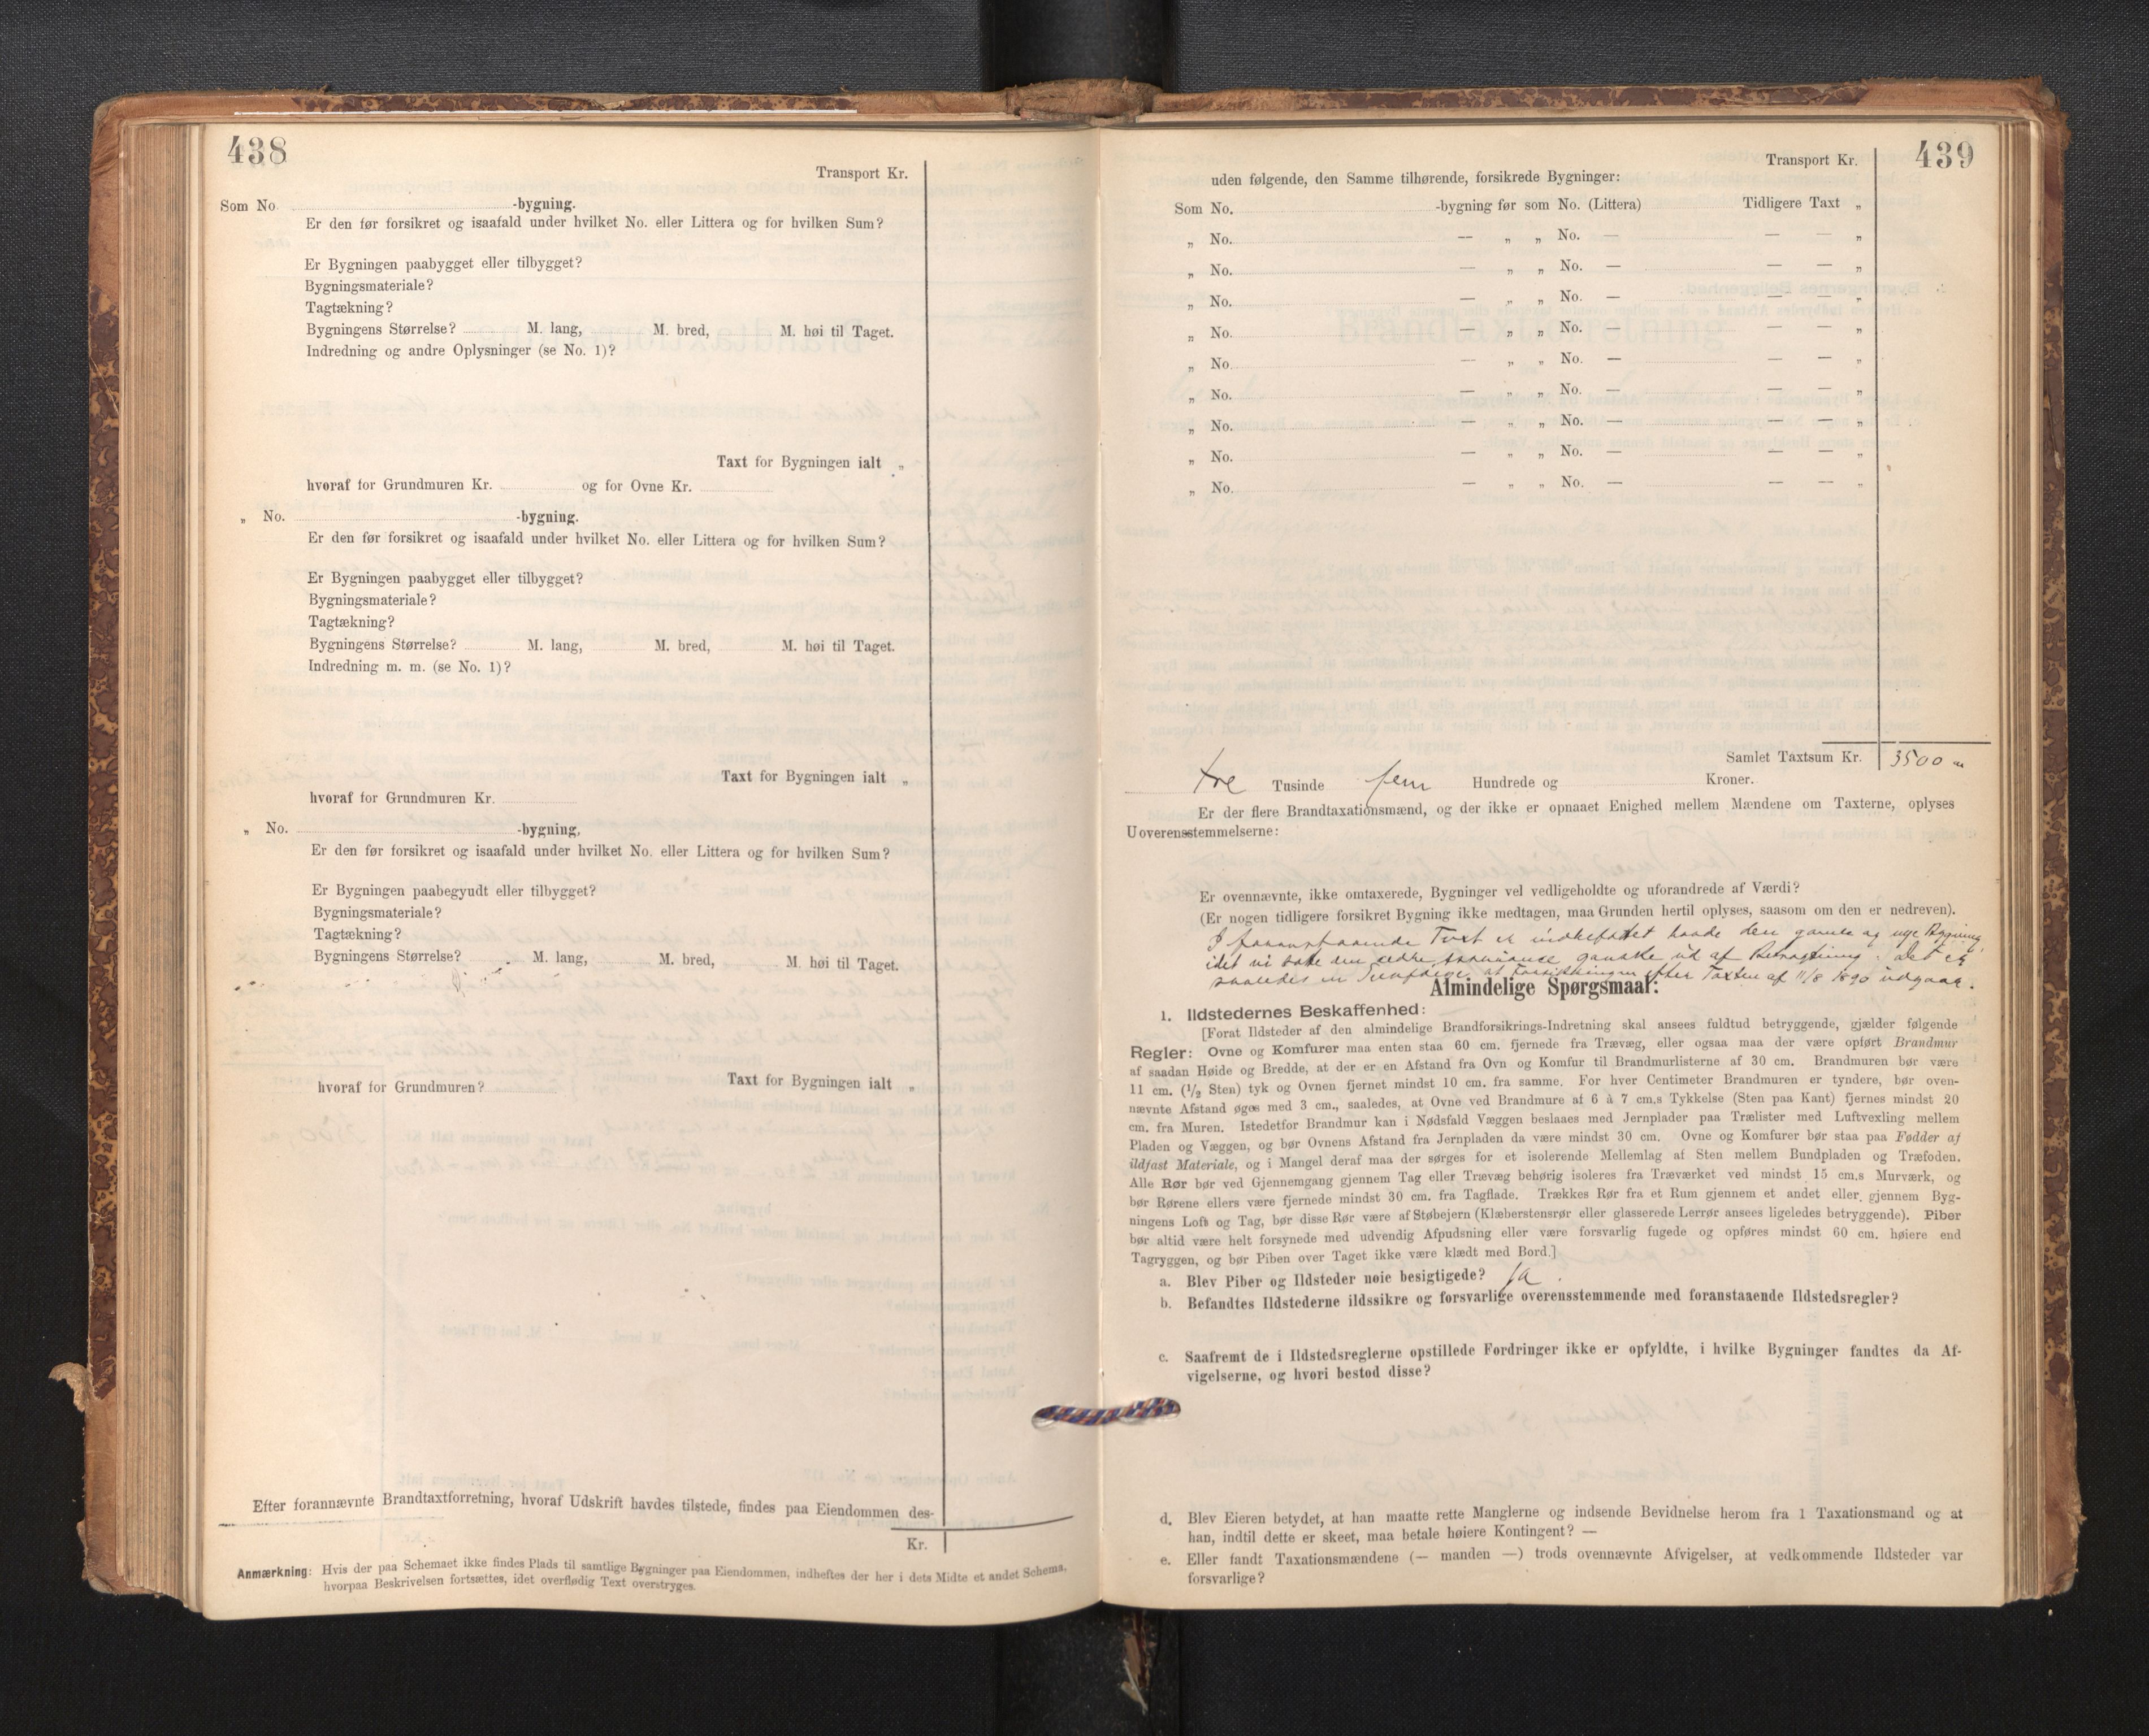 438
Transport Kr.
Som No. -bygning.
Er den før forsikret og isaafald under hvilket No. eller Littera og for hvilken Sum?
Er Bygningen paabygget eller tilbygget?
Bygningsmateriale?
Tagtækning?
Bygningens Størrelse? M. lang, M. bred, M. høi til Taget.
Indredning og andre Oplysninger (se No. 1)?
Taxt for Bygningen ialt „
hvoraf for Grundmuren Kr. og for Ovne Kr.
„ No. -bygning.
Er den før forsikret og isaafald under hvilket No. eller Littera og for hvilken Sum?
Er Bygningen paabygget eller tilbygget?
Bygningsmateriale?
Tagtækning?
Bygningens Størrelse? M. lang, M. bred, M. høi til Taget.
Indredning m. m. (se No. 1)?
Taxt for Bygningen ialt „
hvoraf for Grundmuren Kr.
„ No. -bygning,
Er den før forsikret og isaafald under hvilket No. eller Littera og for hvilken Sum?
Er Bygningen paabegyudt eller tilbygget?
Bygningsmateriale?
Tagtækning?
Bygningens Størrelse? M. lang, M. bred, M. høi til Taget.
Taxt for Bygningen ialt „
hvoraf for Grundmuren?
Efter forannævnte Brandtaxtforretning, hvoraf Udskrift havdes tilstede, findes paa Eiendommen des-
Kr.
Anmærkning: Hvis der paa Schemaet ikke findes Plads til samtlige Bygninger paa Eiendommen, indheftes der her i dets Midte et andet Schema,
hvorpaa Beskrivelsen fortsættes, idet overflødig Text overstryges.
439
Transport Kr.
uden følgende, den Samme tilhørende, forsikrede Bygninger:
Som No. -bygning før som No. (Littera) Tidligere Taxt „
„ No. — „ „ No. — — — „
„ No. — „ „ No. — — — „
„ No. — „ „ No. — — — „
„ No. — „ „ No. — — — „
„ No. — „ „ No. — — — „
„ No. — „ „ No. — — — „
„ No. — „ „ No. — — — „
„ No. — „ „ No. — — — „
„ No. — „ „ No. — — — „
Samlet Taxtsum Kr. 3500
tre Tusinde fem Hundrede og Kroner.
Er der flere Brandtaxationsmænd, og der ikke er opnaaet Enighed mellem Mændene om Taxterne, oplyses
Uoverensstemmelserne:
Er ovennævnte, ikke omtaxerede, Bygninger vel vedligeholdte og uforandrede af Værdi?
(Er nogen tidligere forsikret Bygning ikke medtagen, maa Grunden hertil oplyses, saasom om den er nedreven).
I foranstaaende Taxt er indbefattet baade den gamle og nye Bygning,
idet vi den ældre ganske ud af Betragtning. Det er
saaledes en at Forsikringen efter Taxten af 11/8 1890 udgaar.
Almindelige Spørgsmaal:
1. Ildstedernes Beskaffenhed:
[Forat Ildsteder af den almindelige Brandforsikrings-Indretning skal ansees fuldtud betryggende, gjælder følgende
Regler: Ovne og Komfurer maa enten staa 60 cm. fjernede fra Trævæg, eller ogsaa maa der være opført Brandmur
af saadan Høide og Bredde, at der er en Afstand fra Ovn og Komfur til Brandmurlisterne af 30 cm. Brandmuren bør være
11 cm. (1/2 Sten) tyk og Ovnen fjernet mindst 10 cm. fra samme. For hver Centimeter Brandmuren er tyndere, bør oven-
nævnte Afstand øges med 3 cm., saaledes, at Ovne ved Brandmure af 6 à 7 cm.s Tykkelse (Sten paa Kant) fjernes mindst 20
cm. fra Muren. Istedetfor Brandmur kan i Nødsfald Væggen beslaaes med Jernplader paa Trælister med Luftvexling mellem
Pladen og Væggen, og bør Ovnens Afstand fra Jernpladen da være mindst 30 cm. Ovne og Komfurer bør staa paa Fødder af
ildfast Materiale, og i Mangel deraf maa der sørges for et isolerende Mellemlag af Sten mellem Bundpladen og Træfoden.
Alle Rør bør ved Gjennemgang gjennem Tag eller Trævæg behørig isoleres fra Træværket ved mindst 15 cm.s Murværk, og
bør Rørene ellers være fjernede mindst 30 cm. fra Tagflade. Trækkes Rør fra et Rum gjennem et andet eller gjennem Byg-
ningens Loft og Tag, bør disse Rør være af Støbejern (Klæberstensrør eller glasserede Lerrør ansees ligeledes betryggende). Piber
bør altid være helt forsynede med udvendig Afpudsning eller være forsvarlig fugede og opføres mindst 60 cm. høiere end
Tagryggen, og bør Piben over Taget ikke være klædt med Bord.]
a. Blev Piber og Ildsteder nøie besigtigede? ja.
b. Befandtes Ildstederne ildssikre og forsvarlige overensstemmende med foranstaaende Ildstedsregler?
c. Saafremt de i Ildstedsreglerne opstillede Fordringer ikke er opfyldte, i hvilke Bygninger fandtes da Af-
vigelserne, og hvori bestod disse?
d. Blev Eieren betydet, at han maatte rette Manglerne og indsende Bevidnelse herom fra 1 Taxationsmand og at
han, indtil dette er skeet, maa betale høiere Kontingent? —
e. Eller fandt Taxationsmændene (— manden —) trods ovennævnte Afvigelser, at vedkommende Ildsteder var
forsvarlige?